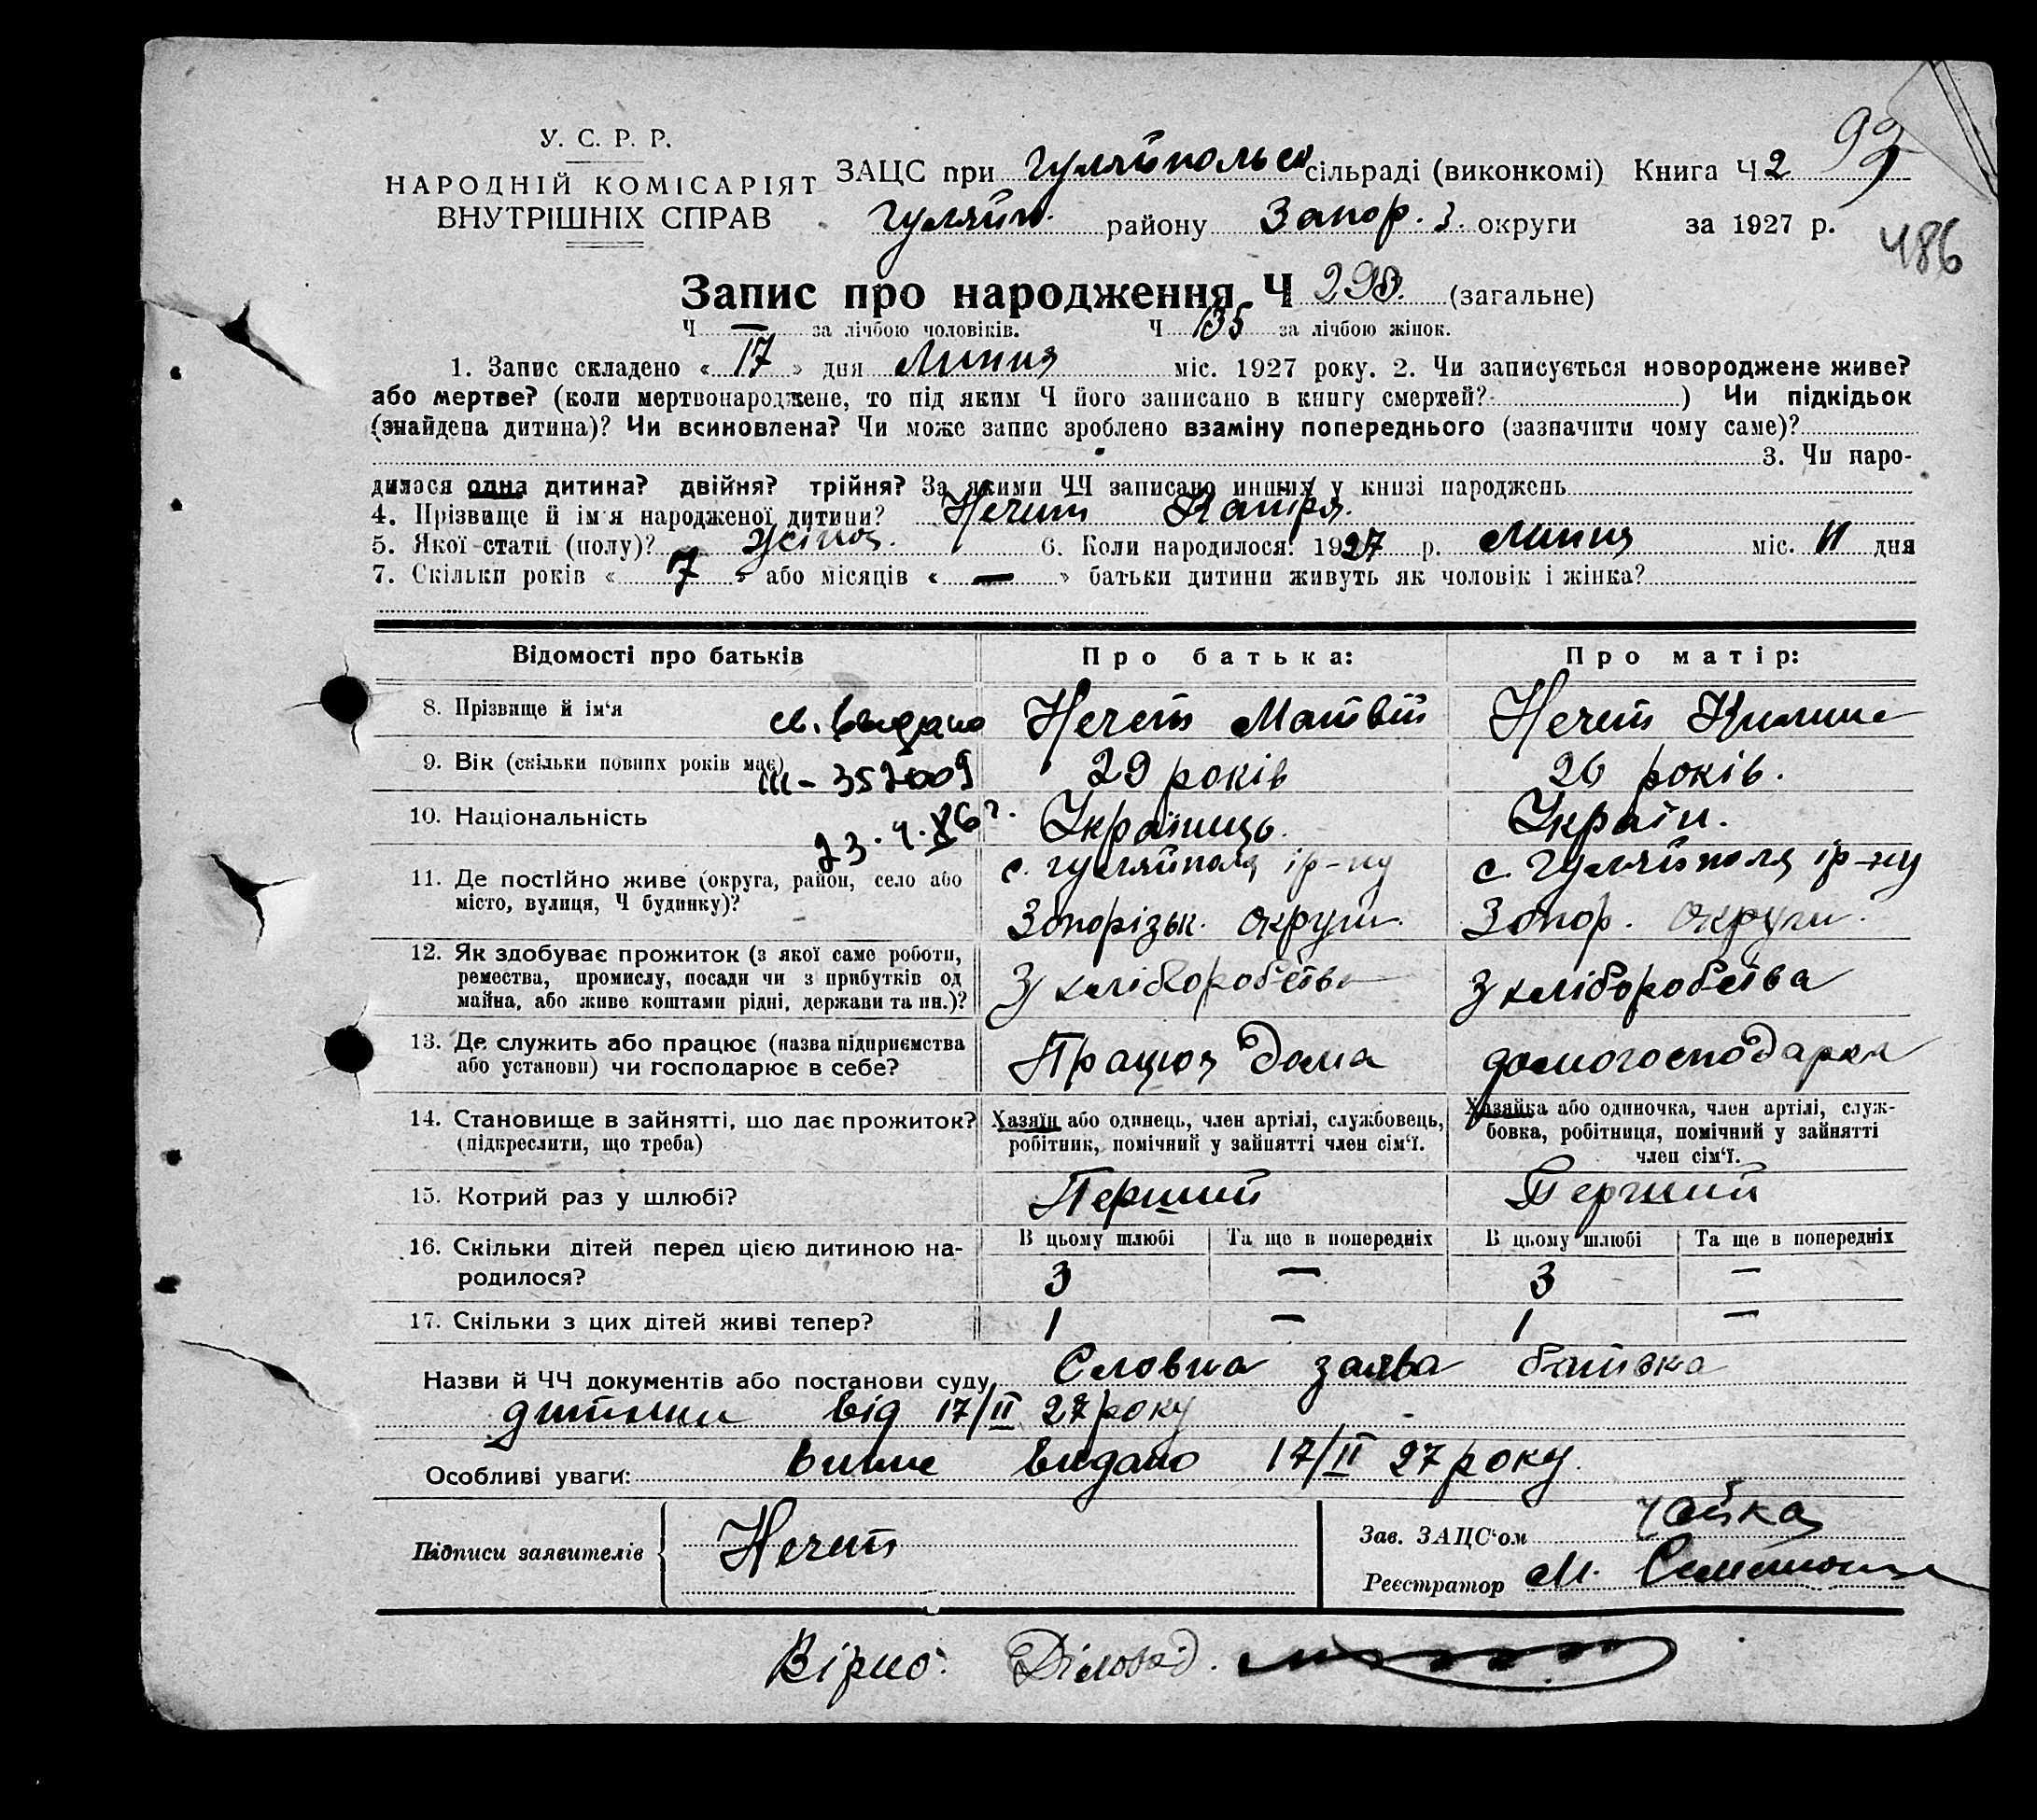 99
У. С. Р. Р.
НАРОДНІЙ КОМІСАРІЯТ
ВНУТРІШНІХ СПРАВ
ЗАЦС при Гуляйпольск сільраді (виконкомі) Книга Ч 2
Гуляйп. району Запоріз. округи за 1927 р.
486
Запис про народження Ч 298. (загальне)
Ч — за лічбою чоловіків. Ч 135 за лічбою жінок.
1. Запис складено « 17 » дня Липня міс. 1927 року. 2. Чи записується новороджене живе?
або мертве? (коли мертвонароджене, то під яким Ч його записано в книгу смертей? ) Чи підкідьок
(знайдена дитина)? Чи всиновлена? Чи може запис зроблено взаміну попереднього (зазначити чому саме)?
3. Чи наро-
дилося одна дитина? двійня? трійня? За якими ЧЧ записано инших у книзі народжень
4. Прізвище й ім'я народженої дитини? Нечет
5. Якої стати (полу)? Жіноч. 6. Коли народилося: 1927 р. Липня міс. 11 дня
7. Скільки років « 7 » або місяців « — » батьки дитини живуть як чоловік і жінка?
Відомості про батьків Про батька: Про матір:
8. Прізвище й ім'я Нечет Матвій Нечет Килина
св. видано
9. Вік (скільки повних років має) 29 років 26 років.
III - 357009
10. Національність Українець. Україн.
11. Де постійно живе (округа, район, село або
місто, вулиця, Ч будинку)?
с. Гуляйполя р-ну
Запорізьк. округи.
с. Гуляйполя р-ну
Запор. округи.
12. Як здобуває прожиток (з якої саме роботи,
ремества, промислу, посади чи з прибутків од
майна, або живе коштами рідні, держави та ин.)?
З хліборобства
З хліборобства
13. Де служить або працює (назва підприємства
або установи) чи господарює в себе?
Працює дома
домогосподарка
14. Становище в зайнятті, що дає прожиток?
(підкреслити, що треба)
Хазяїн або одинець, член артілі, службовець,
робітник, помічний у зайнятті член сім'ї.
Хазяйка або одиночка, член артілі, служ-
бовка, робітниця, помічний у зайнятті
член сім'ї.
15. Котрий раз у шлюбі? Перший Перший
16. Скільки дітей перед цією дитиною на-
родилося?
В цьому шлюбі Та ще в попередніх В цьому шлюбі Та ще в попередніх
3 — 3 —
17. Скільки з цих дітей живі тепер? 1 — 1 —
Назви й ЧЧ документів або постанови суду Словна заява батька
дитини від 17/II 27 року
Особливі уваги: видано 17/II 27 року.
Підписи заявителів Нечет
Зав. ЗАЦС'ом Чайка
Реєстратор М.
Вірно: Діловод.